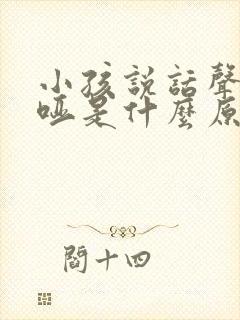 小孩説話聲
啞是什麼原
閻十四